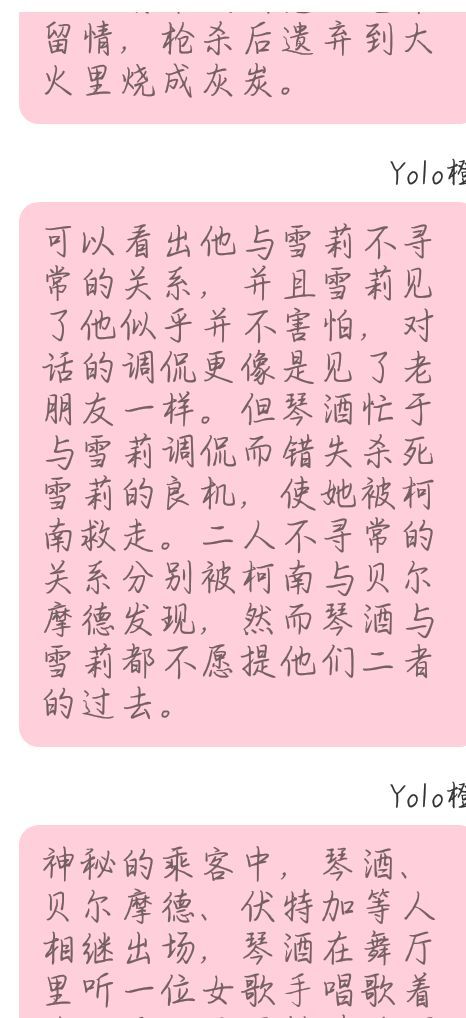 留情，枪杀后遗弃到大
火里烧成灰炭。
Yolo橙
可以看出他与雪莉不寻
常的关系，并且雪莉见
了他似乎并不害怕，对
话的调侃更像是见了老
朋友一样。但琴酒忙于
与雪莉调侃而错失杀死
雪莉的良机，使她被柯
南救走。二人不寻常的
关系分别被柯南与贝尔
摩德发现，然而琴酒与
雪莉都不愿提他们二者
的过去。
Yolo橙
神秘的乘客中，琴酒、
贝尔摩德、伏特加等人
相继出场，琴酒在舞厅
里听一位女歌手唱歌着